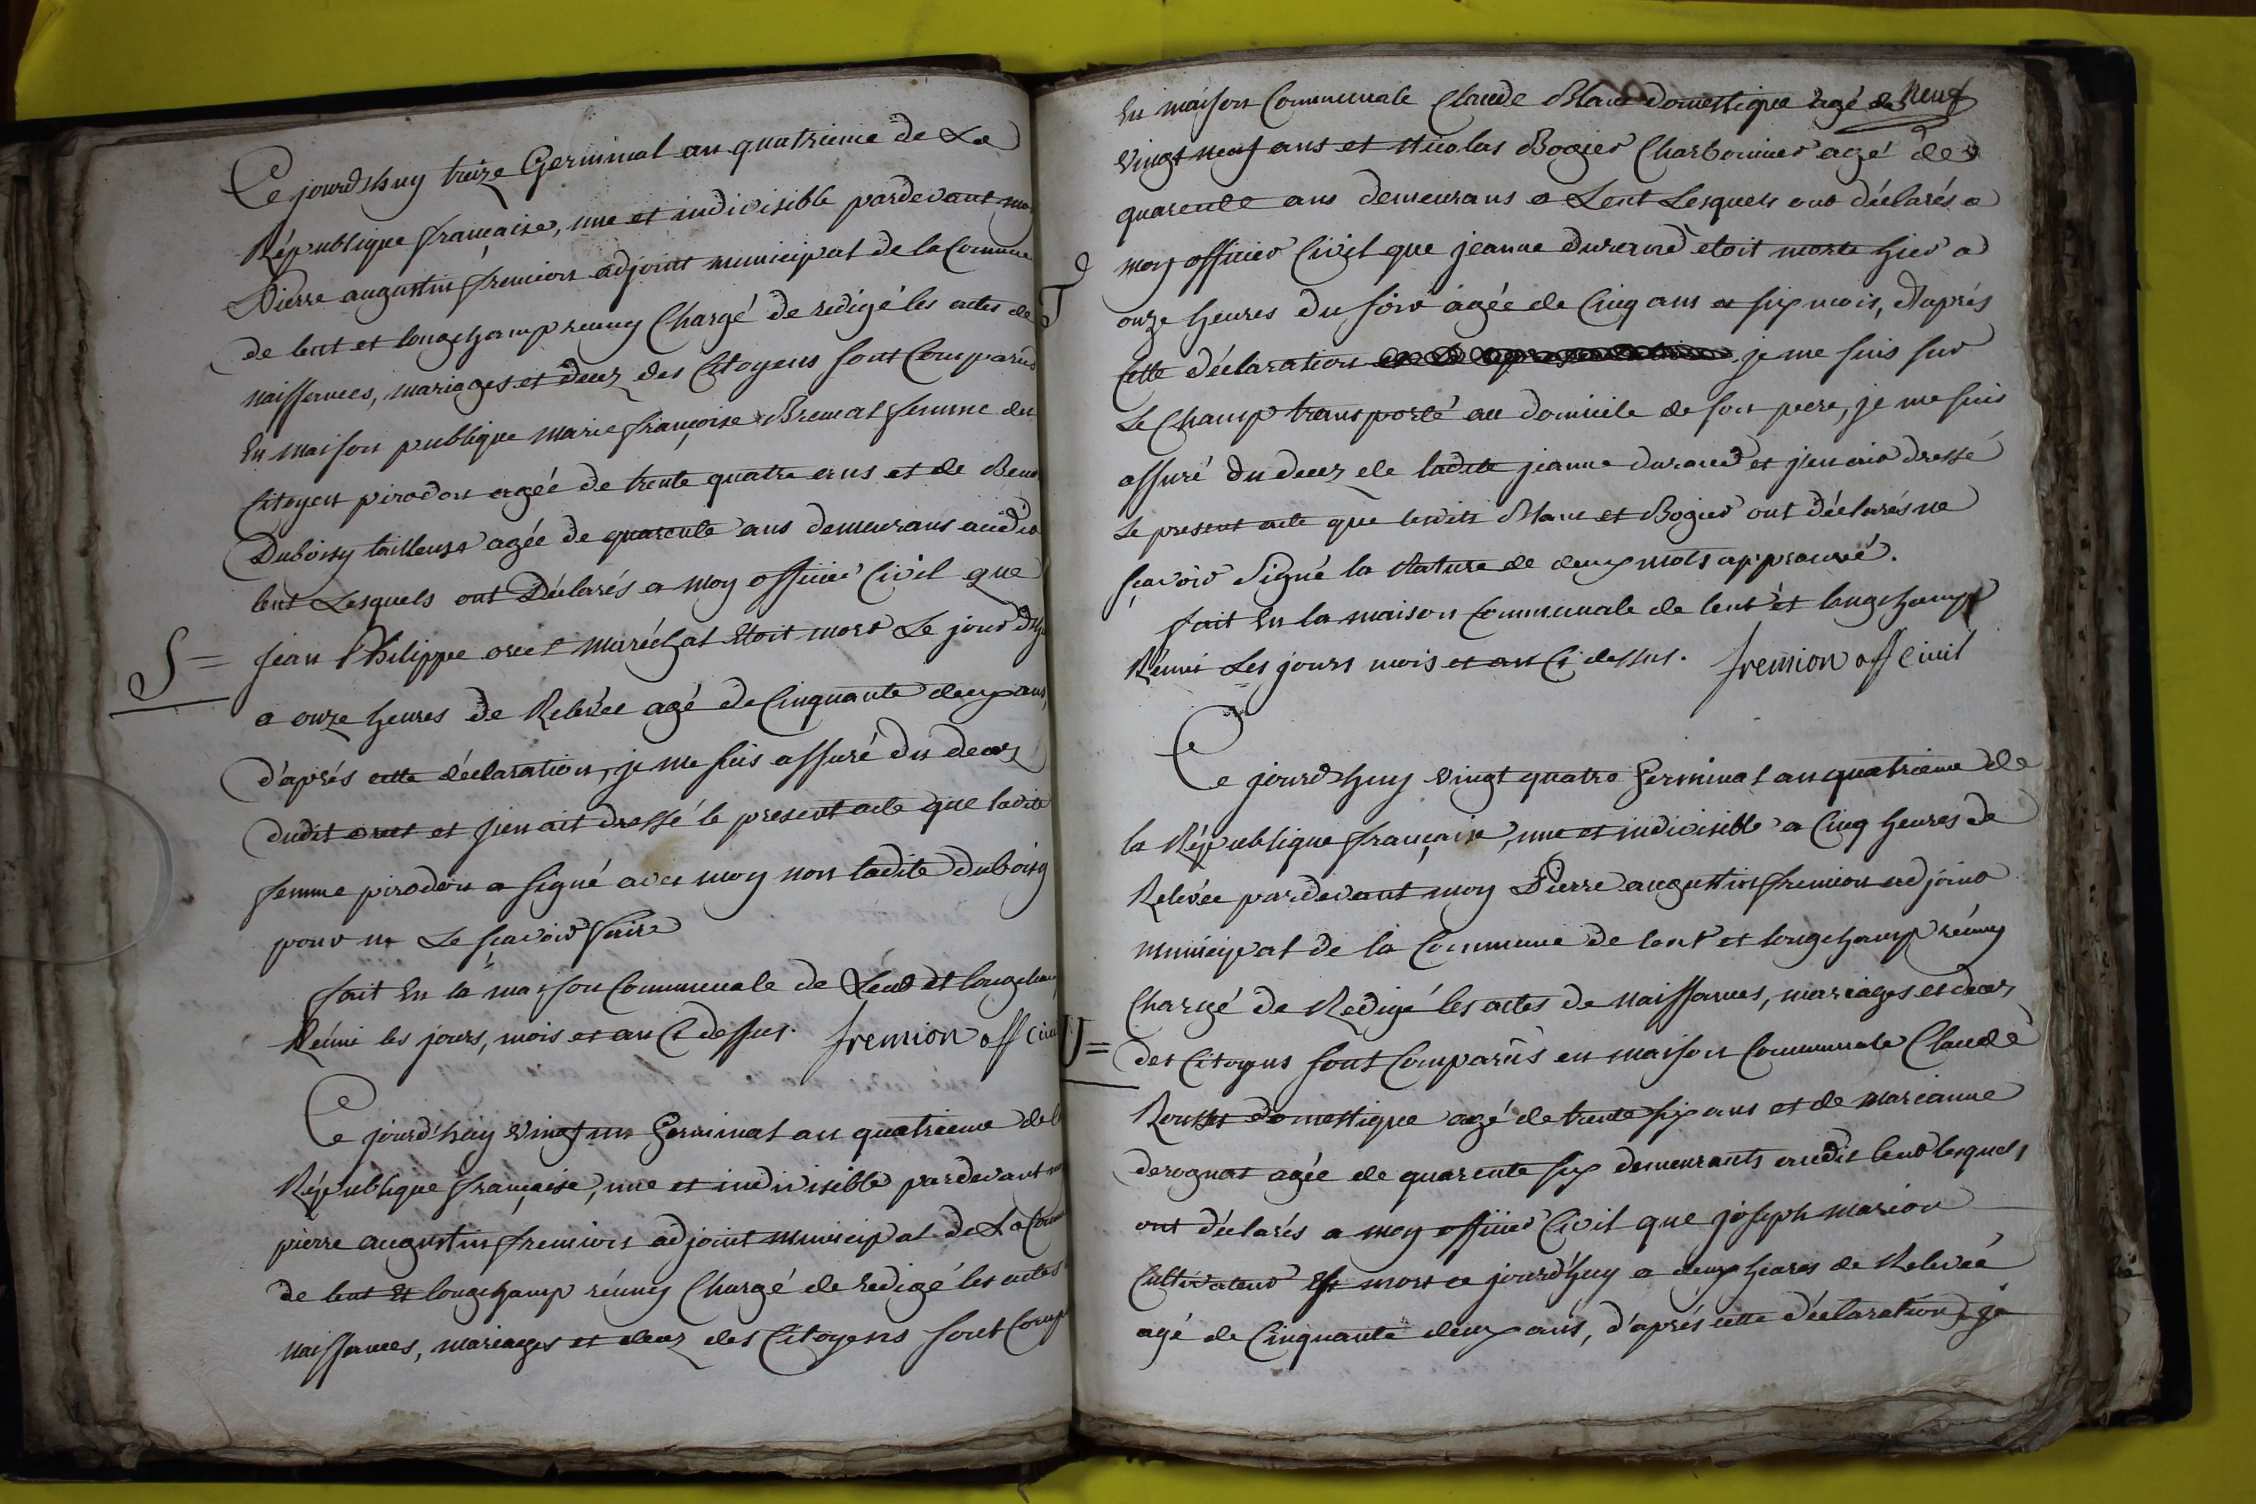 Ce jourd'huy treize Germinal an quatrieme de La
République française, une et indivisible pardevant moy
Pierre augustin fremion adjoint municipal de la Commune
de lent et longchamp reuny Chargé de redigé les actes de
naissances, mariages et decez des Citoyens sont Comparus
En maison publique marie françoise Bremal femme du
Citoyen pirodon agée de trente quatre ans et de
Duboisy tailleuse agée de quarente ans demeurans audit
lent Lesquels ont Déclarés a moy officier Civil que
S = jean Philippe orcet maréchal Etoit mort Le jour d'hyer
a onze heures de Relevée agé de Cinquante deux ans,
d'aprés cette déclaration, je me suis assuré du decez
dudit orcet et j'en ait dressé le present acte que ladite
femme pirodon a signé avec moy non ladite Duboisy
pour ne Le sçavoir faire
fait En la maison Communale de Lent et longchamp
Réuni les jours, mois et an Ci dessus. fremion off civil
Ce jourd'huy vingt un Germinal an quatrieme de la
République française, une et indivisible pardevant moy
pierre augustin fremion adjoint municipal de La Commune
de lent Et longchamp réuny Chargé de redigé les actes
naissances, mariages et decez des Citoyens sont Comp
En maison Communale Claude Blanc domestique agé de Neuf
vingt neuf ans et Nicolas Bogier Charbonnier agé de
quarente ans demeurans a Lent Lesquels ont déclarés a
T moy officier Civil que jeanne durand etoit morte hier a
onze heures du soir agée de Cinq ans et six mois, d'aprés
Cette déclaration je me suis sur
Le Champ transporté au domicile de son pere, je me suis
assuré du decez de ladite jeanne durand et j'en ait dressé
Le present acte que lesdits Blanc et Bogier ont déclarés ne
sçavoir Signé la Rature de deux mots approuvé.
fait En la maison Communale de lent et longchamp
Réuni Les jours mois et an Ci dessus. fremion off civil
Ce jourd'huy vingt quatre Germinal an quatrieme de
la République française, une et indivisible a Cinq heures de
Relevée pardevant moy Pierre augustin fremion adjoint
municipal de la Commune de lent et longchamp réuny
Chargé de Redigé les actes de naissances, mariages et decez
U = des Citoyens sont Comparûs en maison Communale Claude
Rousset domestique agé de trente six ans et de marianne
derognat agée de quarente six demeurants audit lent lesquels
ont déclarés a moy officier Civil que joseph marion
Cultivateur Est mort ce jourd'huy a deux heures de Relevée
agé de Cinquante deux ans, d'aprés cette déclaration, je